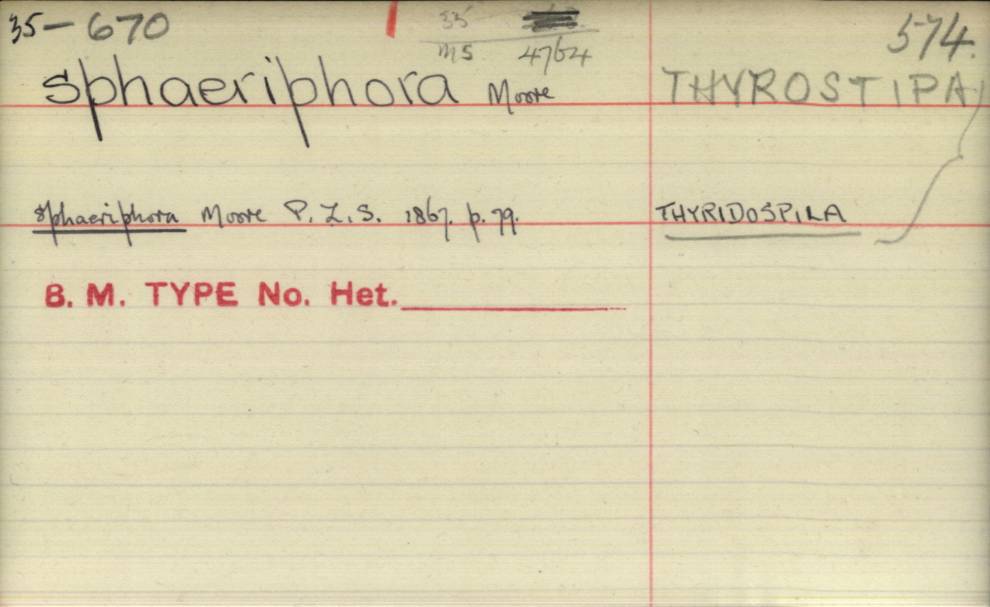 35-670
33
574.
MS 4764
sphaeriphora Moore THYROSTIPA
sphaeriphora Moore P.Z.S. 1867. p. 79. THYRIDOSPILA
B. M. TYPE No. Het.